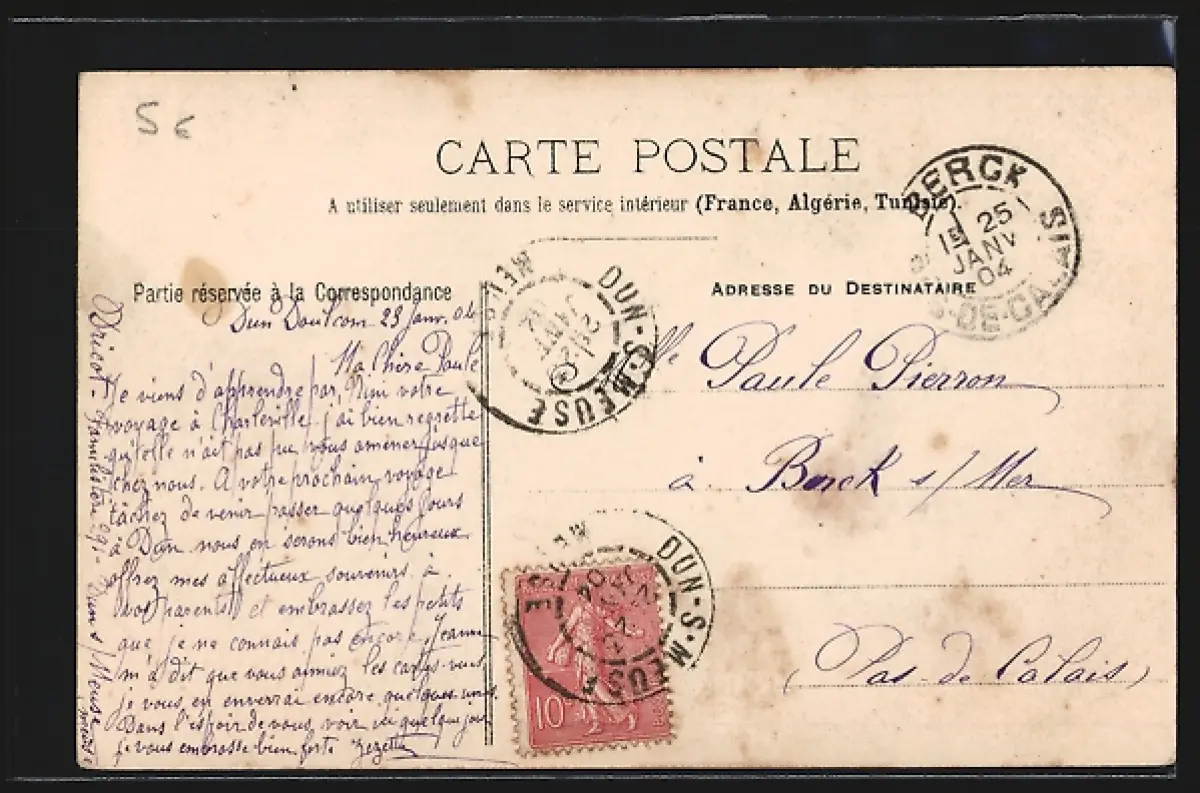 5 €
CARTE POSTALE
A utiliser seulement dans le service intérieur (France, Algérie, Tunisie).
BERCK
25
JANV
04
PAS-DE-CALAIS
Partie réservée à la Correspondance
ADRESSE DU DESTINATAIRE
DUN-S-MEUSE
Dun Doulcon 23 Janv. 04
Ma Chère Paule
Je viens d'apprendre par Mimi votre
voyage à Charleville. j'ai bien regretté
qu'elle n'ait pas pu vous amener jusque
chez nous. A votre prochain voyage
tâchez de venir passer quelques jours
à Dun nous en serons bien heureux
offrez mes affectueux souvenirs à
vos parents et embrassez les petits
que je ne connais pas encore. Jeanne
m'a dit que vous aimiez les cartes-vues
je vous en enverrai encore quelques-unes.
Dans l'espoir de vous voir ici quelque jour
je vous embrasse bien forte Zezette
Dricot - Dun s/ Meuse
Mlle Paule Pierron
à Berck s/ Mer
(Pas-de-Calais)
DUN-S-MEUSE
10